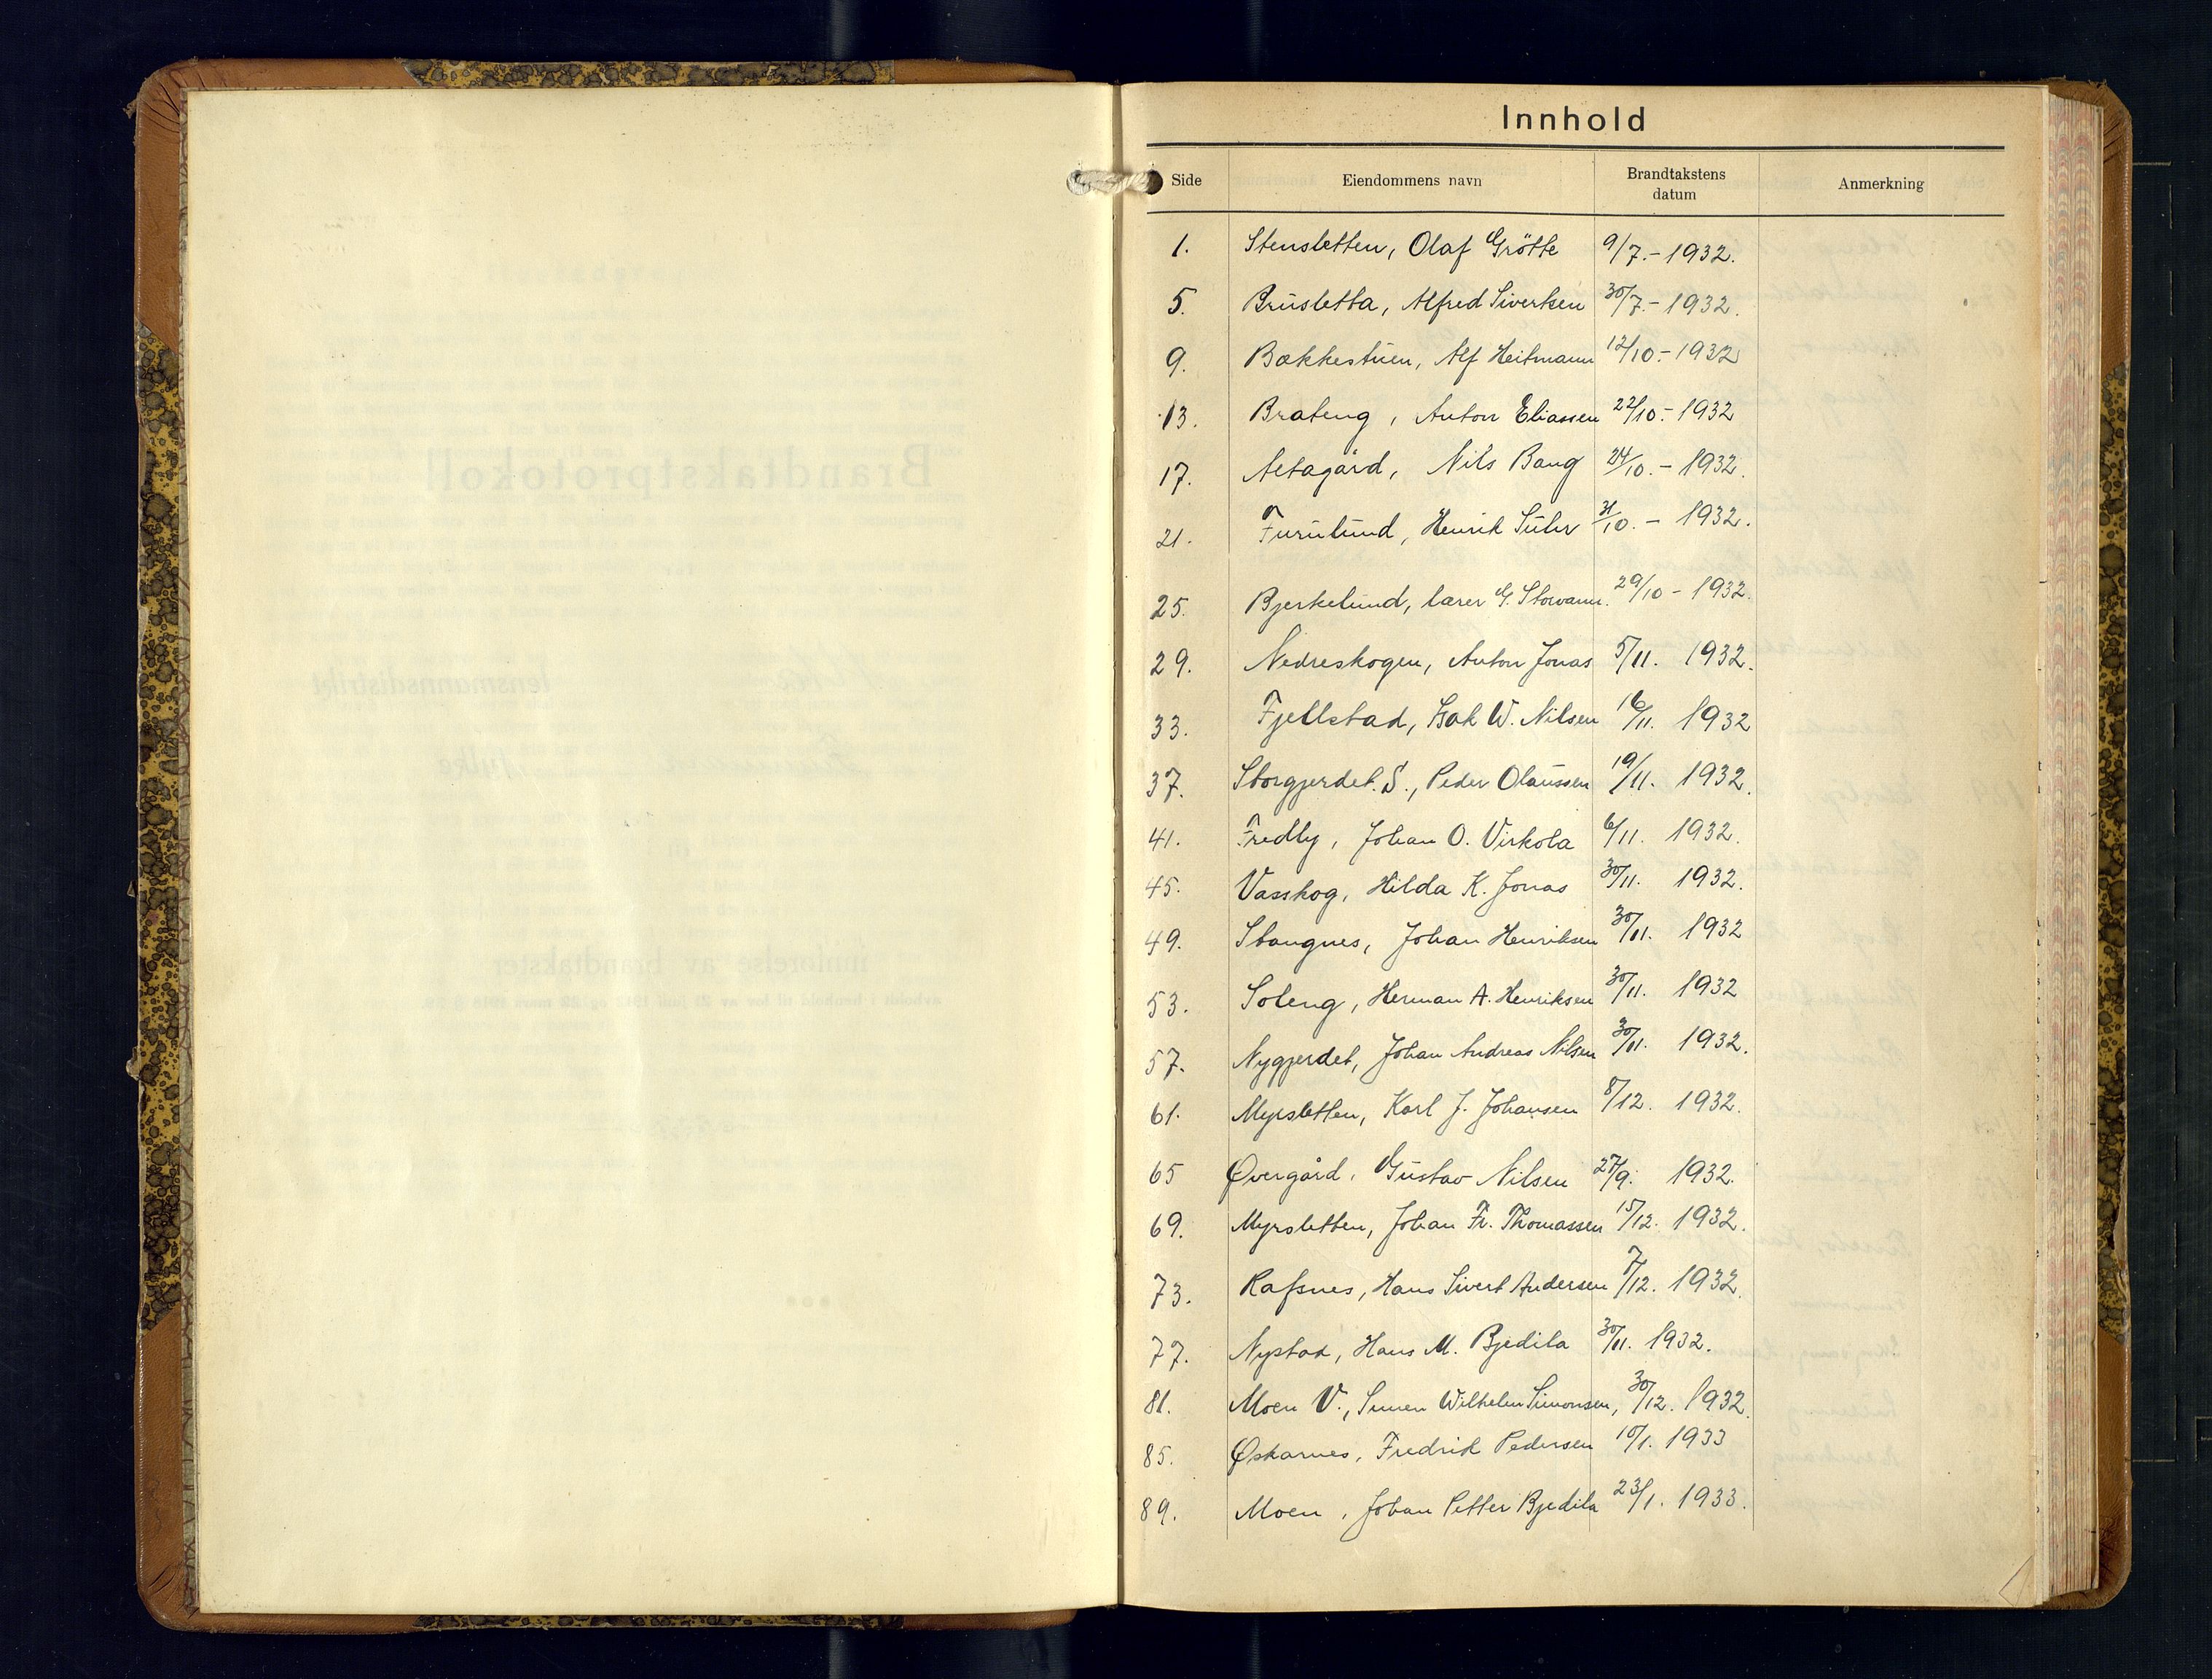 Innhold
Side Eiendommens navn Brandtakstens datum Anmerkning
1. Stensletten, Olaf Grötte 9/7.- 1932.
5. Brusletta, Alfred Sivertsen 30/7.- 1932.
9. Bækkestuen, Alf Heitmann 12/10.- 1932
13. Brateng, Anton Eliassen 22/10.- 1932
17. Altagård, Nils Bang 24/10.- 1932.
21. Furulund, Henrik Suhr 31/10.- 1932.
25. Bjerkelund, lærer G. Storvann. 29/10 - 1932.
29. Nedreskogen, Anton Jonas 5/11. 1932.
33. Fjellstad, Isak W. Nilsen 16/11. 1932
37. Storgjerdet. S., Peder Olaussen 19/11. 1932.
41. Fredly, Johan O. Virkola 6/11. 1932.
45. Vasskog, Hilda K. Jonas 30/11. 1932.
49. Stangnes, Johan Henriksen 30/11. 1932
53. Soleng, Herman A. Henriksen 30/11. 1932
57. Nygjerdet, Johan Andreas Nilsen 30/11. 1932.
61. Myrsletten, Karl J. Johansen 8/12. 1932.
65 Øvergård, Gustav Nilsen 27/9. 1932.
69. Myrsletten, Johan Fr. Thomassen 15/12. 1932.
73. Rafsnes, Hans Sivert Andersen 7/12. 1932.
77. Nystad, Hans M. Bjedila 30/11. 1932.
81. Moen V., Simen Wilhelm Simonsen, 30/12. 1932.
85. Øskarnes, Fredrik Pedersen 10/1. 1933
89. Moen, Johan Petter Bjedila 23/1. 1933.